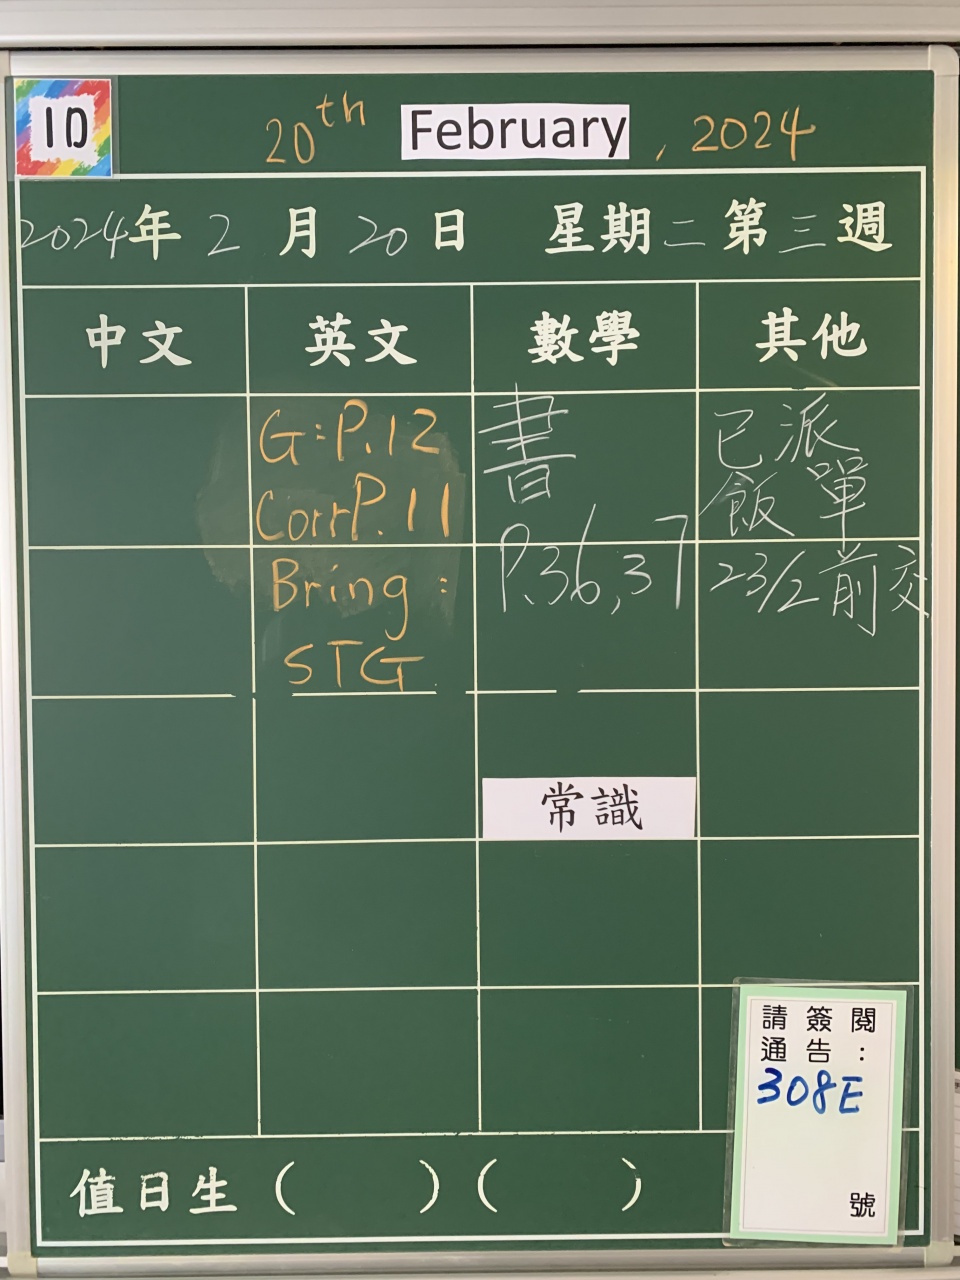 1D
20th February, 2024
2024年 2 月 20 日 星期二 第三週
中文 英文 數學 其他
G:P.12
Corr P.11
Bring:
STG
書
P.36,37
已派
飯單
23/2前交
常識
請簽閱
通告:
308E
號
值日生 ( ) ( )